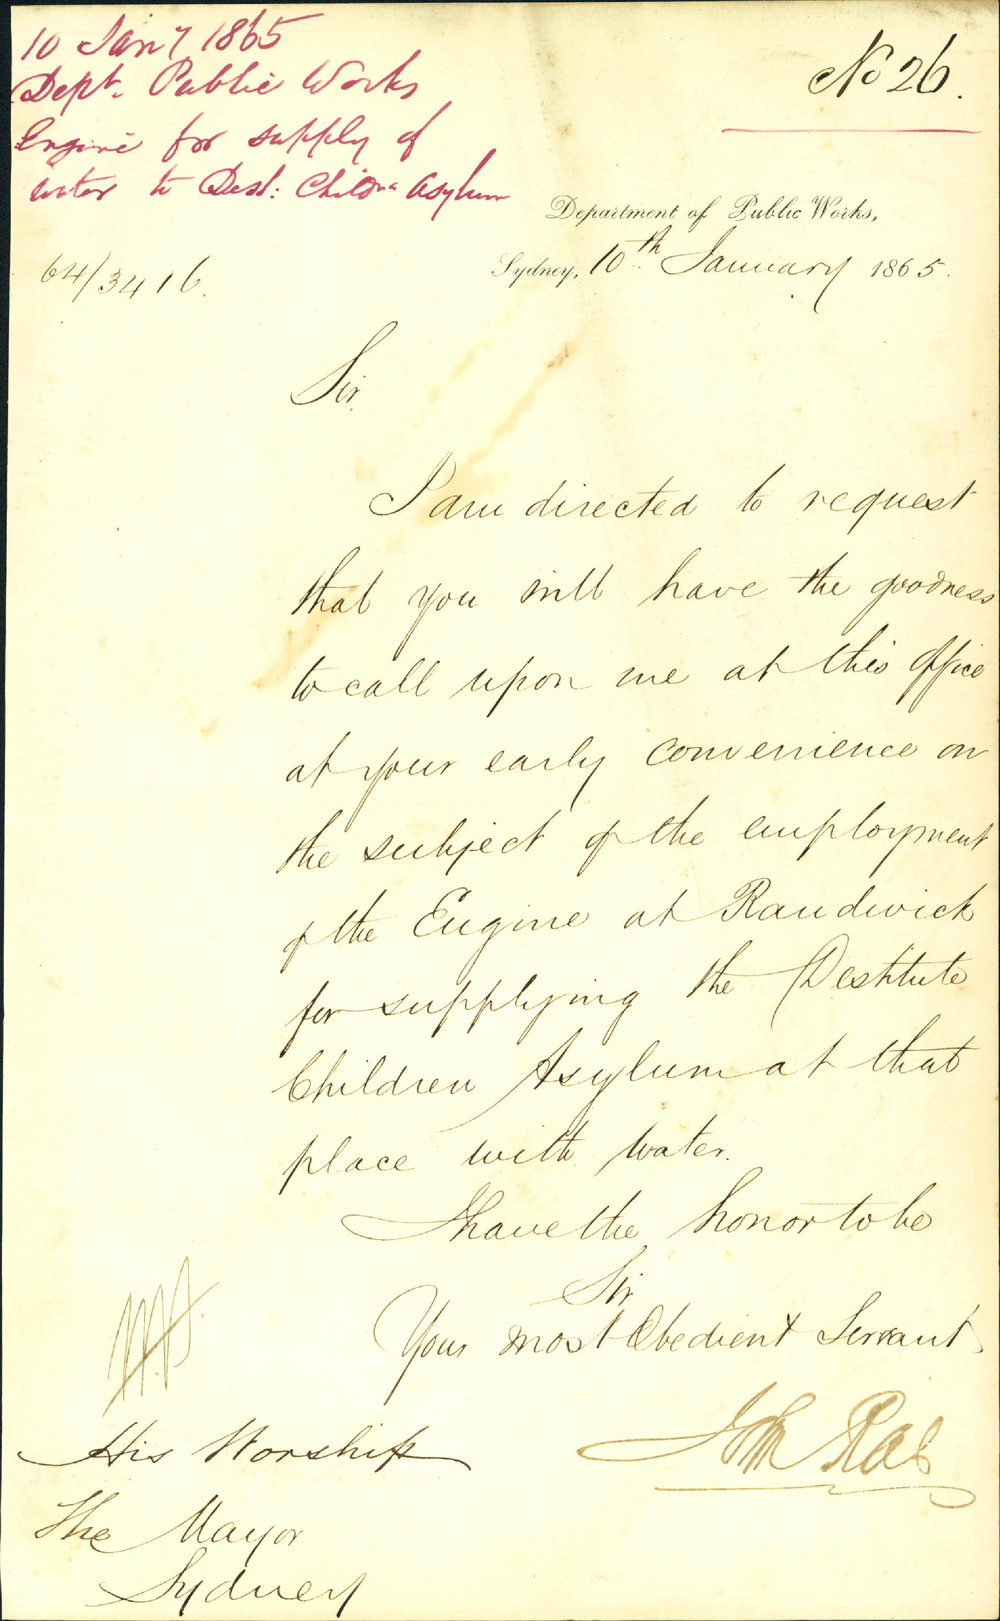 10 Jany 1865
Dept. Public Works
Engine for supply of
water to Dest: Childn Asylum
No 26.
64/3416.
Department of Public Works,
Sydney, 10th January 1865.
Sir,
I am directed to request
that you will have the goodness
to call upon me at this Office
at your early convenience on
the subject of the employment
of the Engine at Randwick
for supplying the Destitute
Children Asylum at that
place with water.
I have the honor to be
Sir
Your most Obedient Servant,
John Rae
His Worship
The Mayor
Sydney